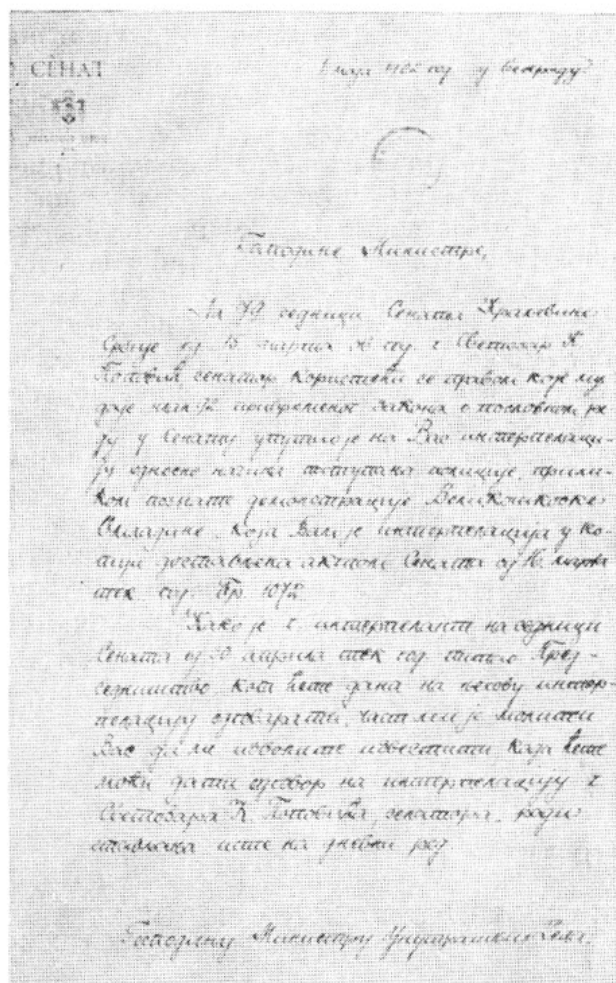 СЕНАТ
маја 1902 год у Београду
Господине Министре,
На 79 седници Сената Краљевине
Србије од 15 марта ов год. г. Светозар К
Поповић сенатор користећи се правом које му
даје члан 72 привременог закона о пословном ре
ду у Сенату упутио је на Вас интерпелаци-
ју односно начина поступања полиције, прили-
ком познате демонстрације Великошколске
Омладине, која Вам је интерпелација у ко-
пији достављена актом Сената од 16. марта
тек год. Бр. 1072
Како је г. интерпелант на седници
Сената од 30 априла тек год. питао Пред-
седништво, ког ћете дана на његову интер-
пелацију одговарати, част ми је молити
Вас да ми изволите известити када ћете
моћи дати одговор на интерпелацију г.
Светозара К. Поповића, сенатора, ради
стављања исте на дневни ред.
Господину Министру Унутрашњих Дела.